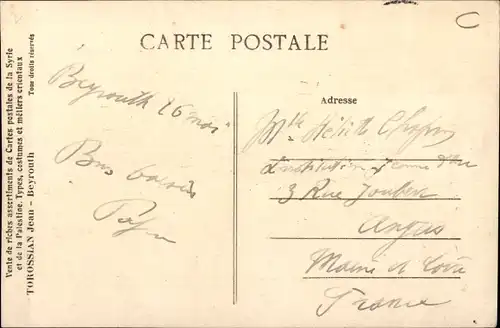 CARTE POSTALE
Vente de riches assortiments de Cartes postales de la Syrie
et de la Palestine. Types, costumes et métiers orientaux
TOROSSIAN Jean - Beyrouth Tous droits réservés
Beyrouth 26 mai
Bons baisers
Adresse
Mlle
Institution Jeanne d'Arc
3 Rue Joubert
Angers
Maine et Loire
France